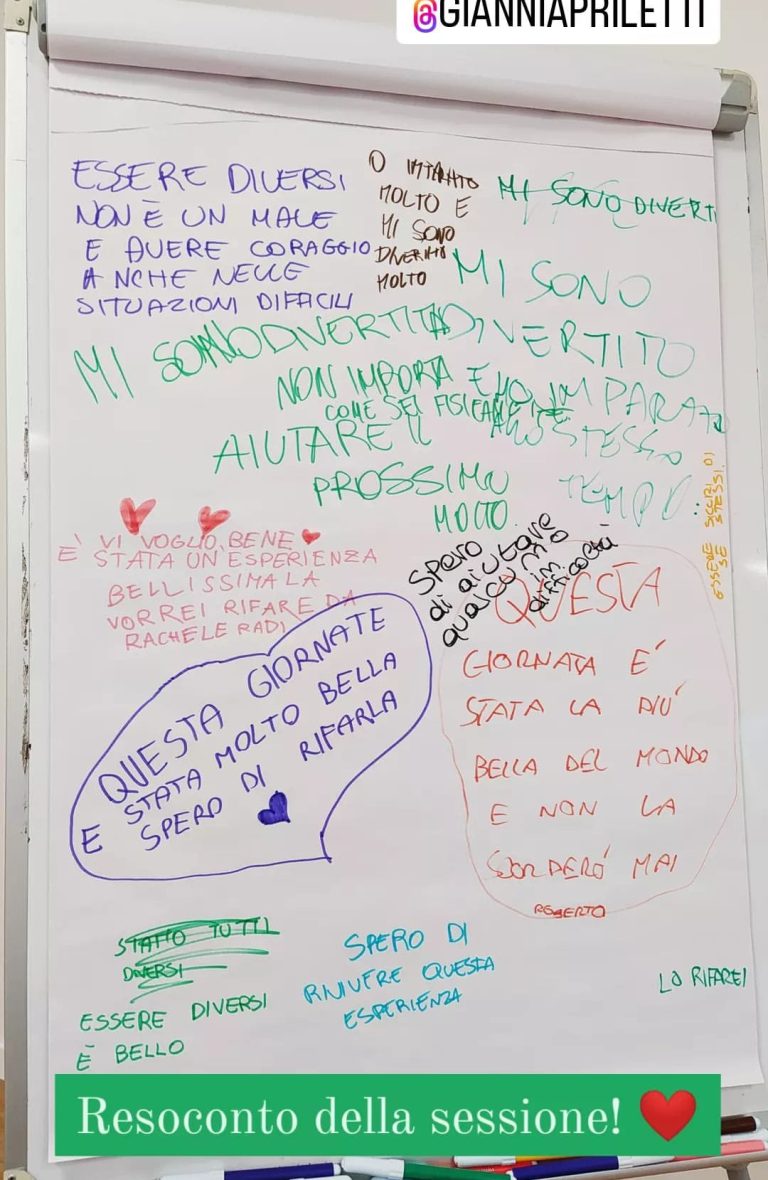 @GIANNIAPRILETTI
ESSERE DIVERSI
NON È UN MALE
E AVERE CORAGGIO
ANCHE NELLE
SITUAZIONI DIFFICILI
O IMPARATO
MOLTO E
MI SONO
DIVERITO
MOLTO
MI SONO DIVERTI
MI SONO
DIVERTITO
E HO IMPARATO
ALLO STESSO
TEMPO
MI SONO DIVERTITA
NON IMPORTA
COME SEI FISICAMENTE
AIUTARE IL
PROSSIMO
MOLTO
ESSERE SICURI DI
SE STESSI
VI VOGLIO BENE
È STATA UN'ESPERIENZA
BELLISSIMA LA
VORREI RIFARE DA
RACHELE RADI
SPERO
di aiutare
qualcuno
in
difficoltà
QUESTA GIORNATE
E STATA MOLTO BELLA
SPERO DI RIFARLA
QUESTA
GIORNATA É
STATA LA PIÚ
BELLA DEL MONDO
E NON LA
SCORDERÓ MAI
ROBERTO
DIVERSI
ESSERE DIVERSI
È BELLO
SPERO DI
RIVIVERE QUESTA
ESPERIENZA
LO RIFAREI
Resoconto della sessione!